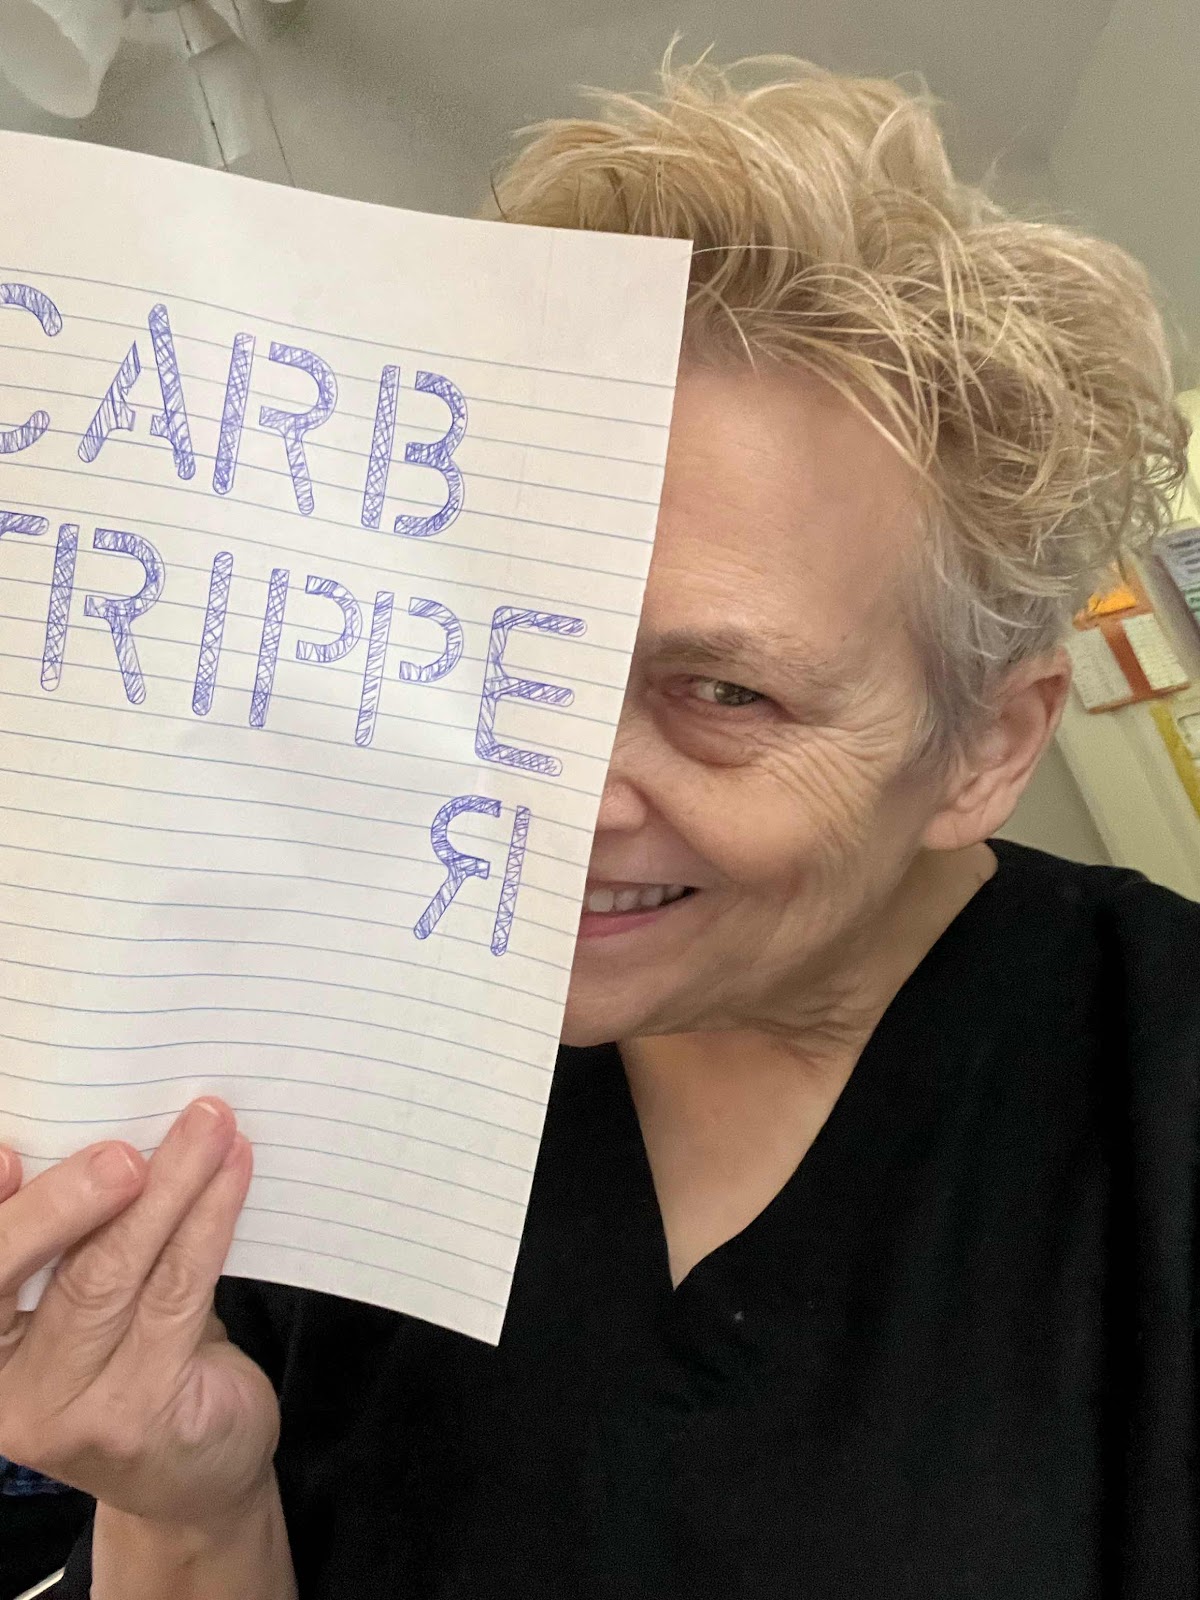 CARB
TRIPPE
Я